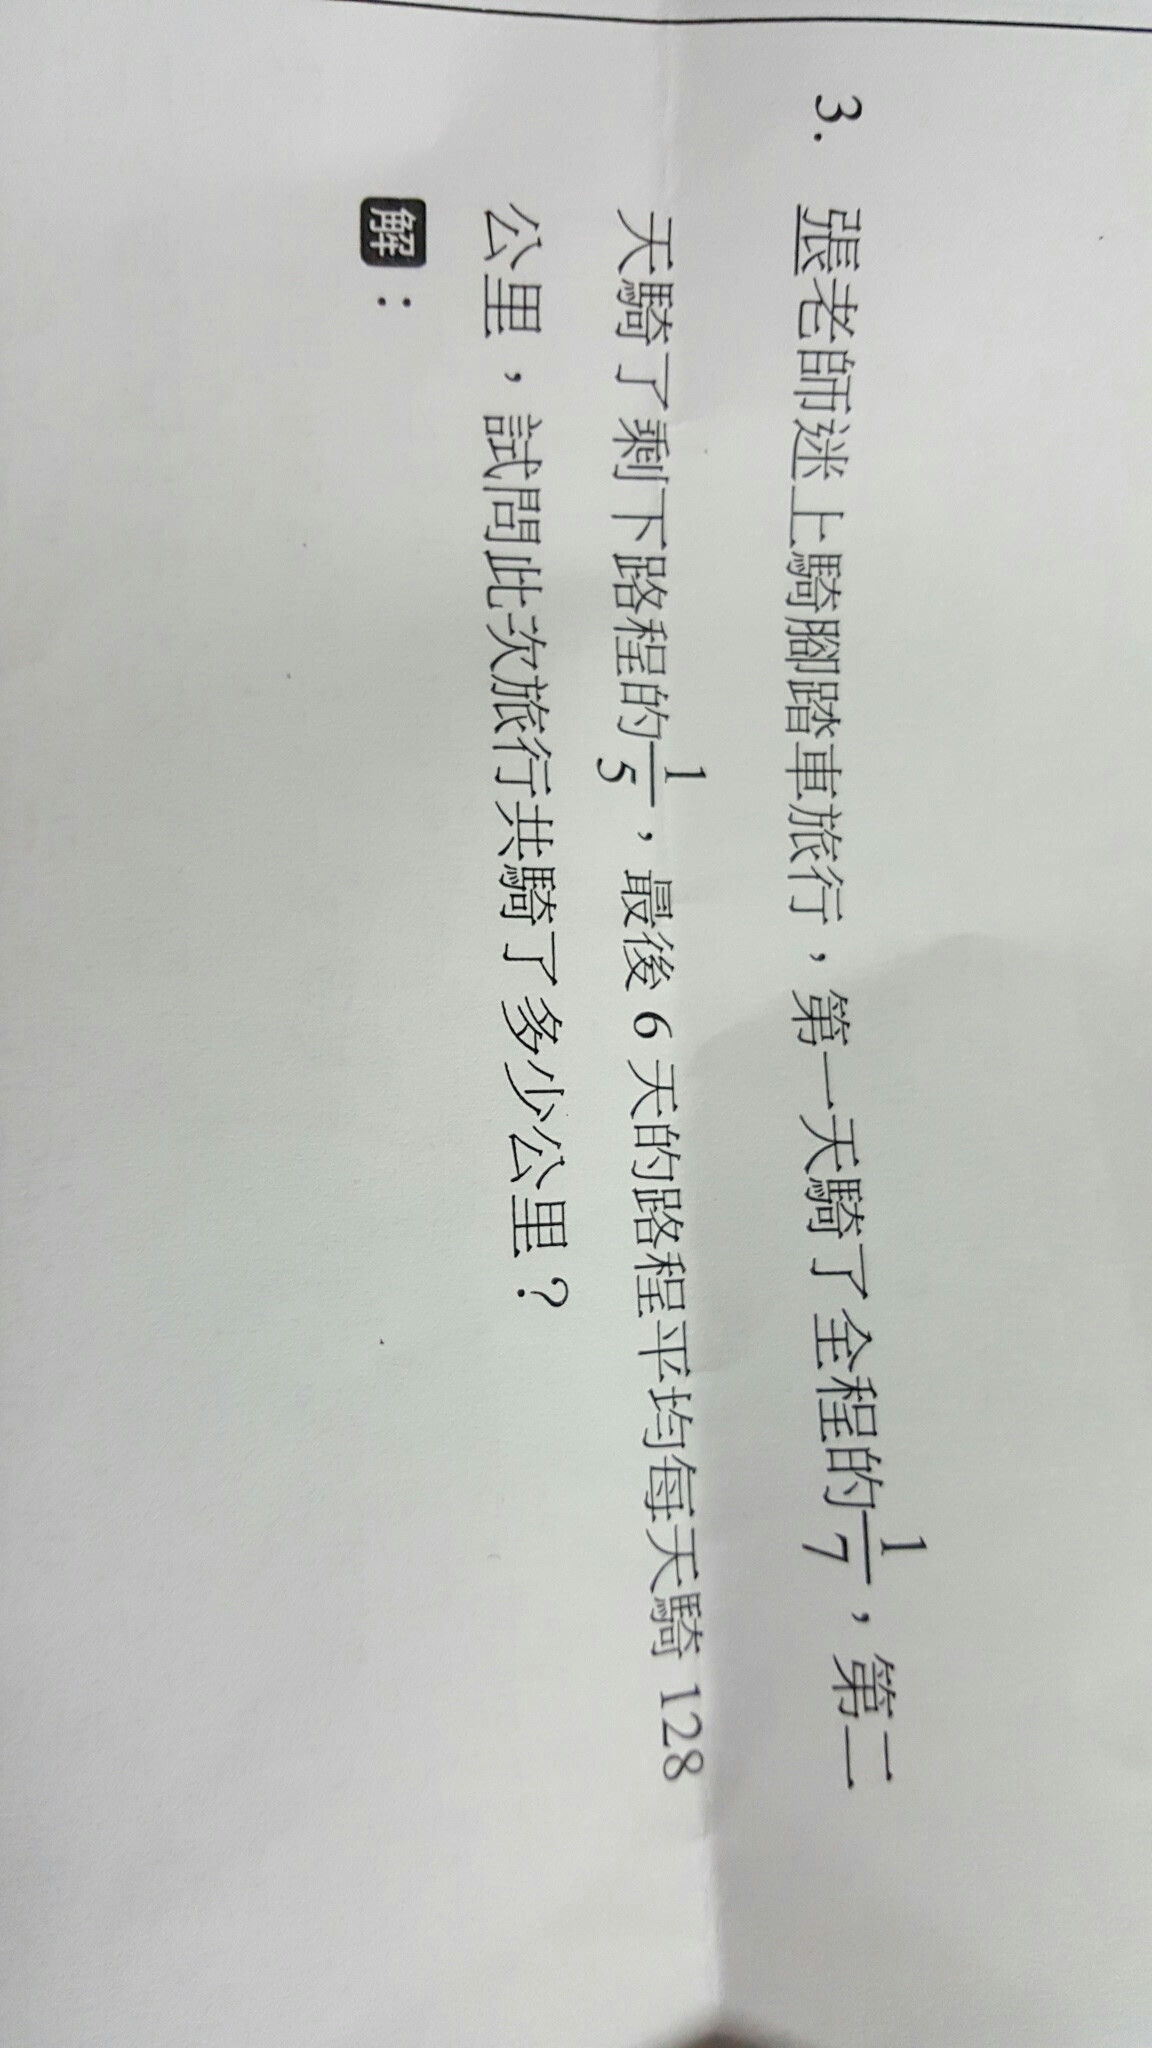 3. 張老師迷上騎腳踏車旅行，第一天騎了全程的1/7，第二
天騎了剩下路程的1/5，最後 6 天的路程平均每天騎 128
公里，試問此次旅行共騎了多少公里？
解：